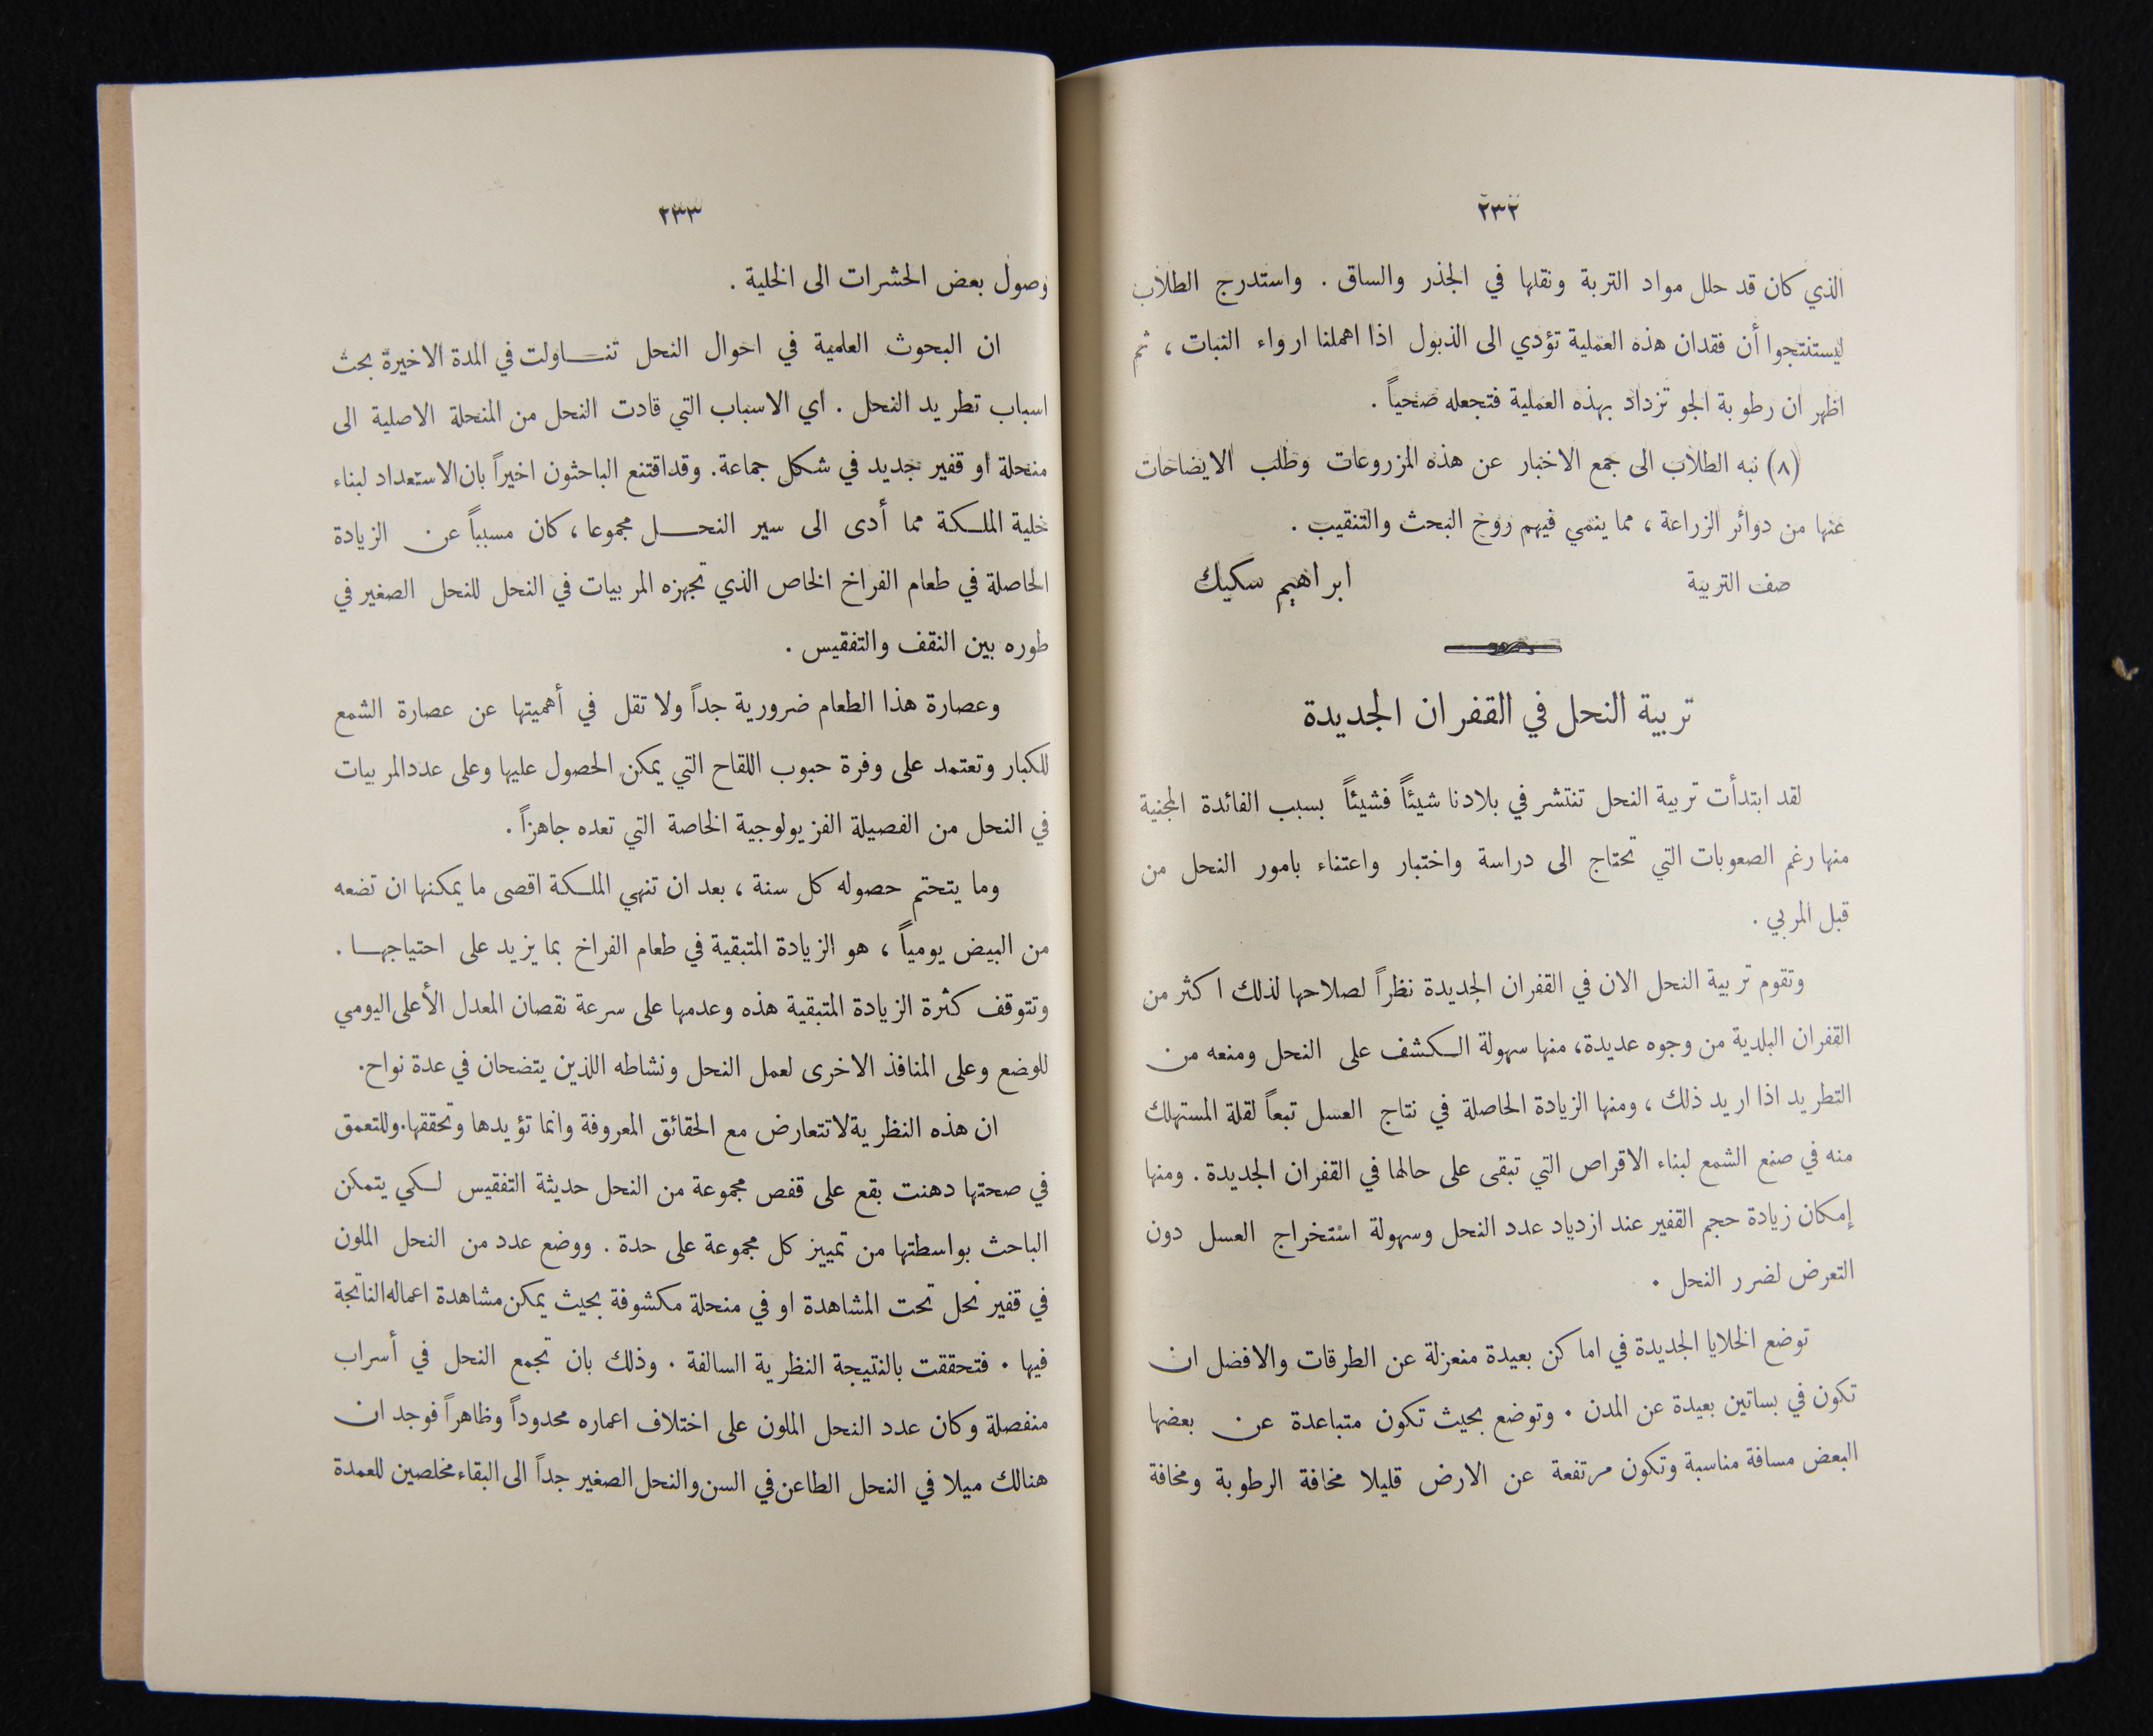 ٢٣٢
الذي كان قد حلل مواد التربة ونقلها في الجذر والساق . واستدرج الطلاب
ليستنتجوا أن فقدان هذه العملية تؤدي الى الذبول اذا اهملنا ارواء النبات ، ثم
اظهر ان رطوبة الجو تزداد بهذه العملية فتجعله صحياً .
(٨) نبه الطلاب الى جمع الاخبار عن هذه المزروعات وطلب الايضاحات
عنها من دوائر الزراعة ، مما ينمي فيهم روح البحث والتنقيب .
صف التربية ابراهيم سكيك
تربية النحل في القفران الجديدة
لقد ابتدأت تربية النحل تنتشر في بلادنا شيئاً فشيئاً بسبب الفائدة المجنية
منها رغم الصعوبات التي تحتاج الى دراسة واختبار واعتناء بامور النحل من
قبل المربي .
وتقوم تربية النحل الان في القفران الجديدة نظراً لصلاحها لذلك اكثر من
القفران البلدية من وجوه عديدة، منها سهولة الكشف على النحل ومنعه من
التطريد اذا اريد ذلك ، ومنها الزيادة الحاصلة في نتاج العسل تبعاً لقلة المستهلك
منه في صنع الشمع لبناء الاقراص التي تبقى على حالها في القفران الجديدة . ومنها
إمكان زيادة حجم القفير عند ازدياد عدد النحل وسهولة استخراج العسل دون
التعرض لضرر النحل .
توضع الخلايا الجديدة في اماكن بعيدة منعزلة عن الطرقات والافضل ان
تكون في بساتين بعيدة عن المدن . وتوضع بحيث تكون متباعدة عن بعضها
البعض مسافة مناسبة وتكون مرتفعة عن الارض قليلا مخافة الرطوبة ومخافة
٢٣٣
وصول بعض الحشرات الى الخلية .
ان البحوث العلمية في احوال النحل تنــاولت في المدة الاخيرة بحث
اسباب تطريد النحل . اي الاسباب التي قادت النحل من المنحلة الاصلية الى
منحلة او قفير جديد في شكل جماعة. وقداقتنع الباحثون اخيراً بان الاستعداد لبناء
خلية الملكة مما أدى الى سير النحــل مجموعا ، كان مسبباً عن الزيادة
الحاصلة في طعام الفراخ الخاص الذي تجهزه المربيات في النحل للنحل الصغير في
طوره بين النقف والتفقيس .
وعصارة هذا الطعام ضرورية جداً ولا تقل في أهميتها عن عصارة الشمع
للكبار وتعتمد على وفرة حبوب اللقاح التي يمكن الحصول عليها وعلى عدد المربيات
في النحل من الفصيلة الفزيولوجية الخاصة التي تعده جاهزاً .
وما يتحتم حصوله كل سنة ، بعد ان تنهي الملكة اقصى ما يمكنها ان تضعه
من البيض يومياً ، هو الزيادة المتبقية في طعام الفراخ بما يزيد على احتياجهـا .
وتتوقف كثرة الزيادة المتبقية هذه وعدمها على سرعة نقصان المعدل الأعلى اليومي
للوضع وعلى المنافذ الاخرى لعمل النحل ونشاطه اللذين يتضحان في عدة نواح.
ان هذه النظرية لاتتعارض مع الحقائق المعروفة وانما تؤيدها وتحققها. وللتعمق
في صحتها دهنت بقع على قفص مجموعة من النحل حديثة التفقيس لكي يتمكن
الباحث بواسطتها من تمييز كل مجموعة على حدة . ووضع عدد من النحل الملون
في قفير نحل تحت المشاهدة او في منحلة مكشوفة بحيث يمكن مشاهدة اعماله الناتجة
فيها . فتحققت بالنتيجة النظرية السالفة . وذلك بان تجمع النحل في أسراب
منفصلة وكان عدد النحل الملون على اختلاف اعماره محدوداً وظاهراً فوجد ان
هنالك ميلا في النحل الطاعن في السن والنحل الصغير جداً الى البقاء مخلصين للعمدة